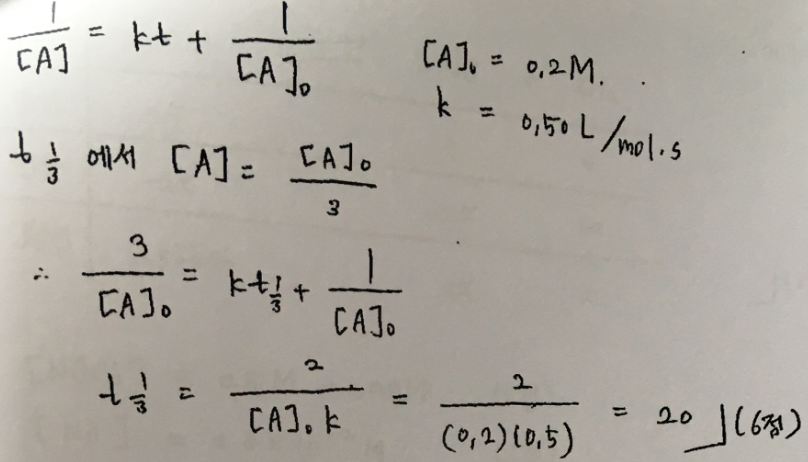 1/[A] = kt + 1/[A]₀
[A]₀ = 0,2M.
k = 0,50 L/mol.s
t 1/3 에서 [A] = [A]₀/3
∴ 3/[A]₀ = kt 1/3 + 1/[A]₀
t 1/3 = 2/[A]₀k = 2/(0,2)(0,5) = 20 」(6점)